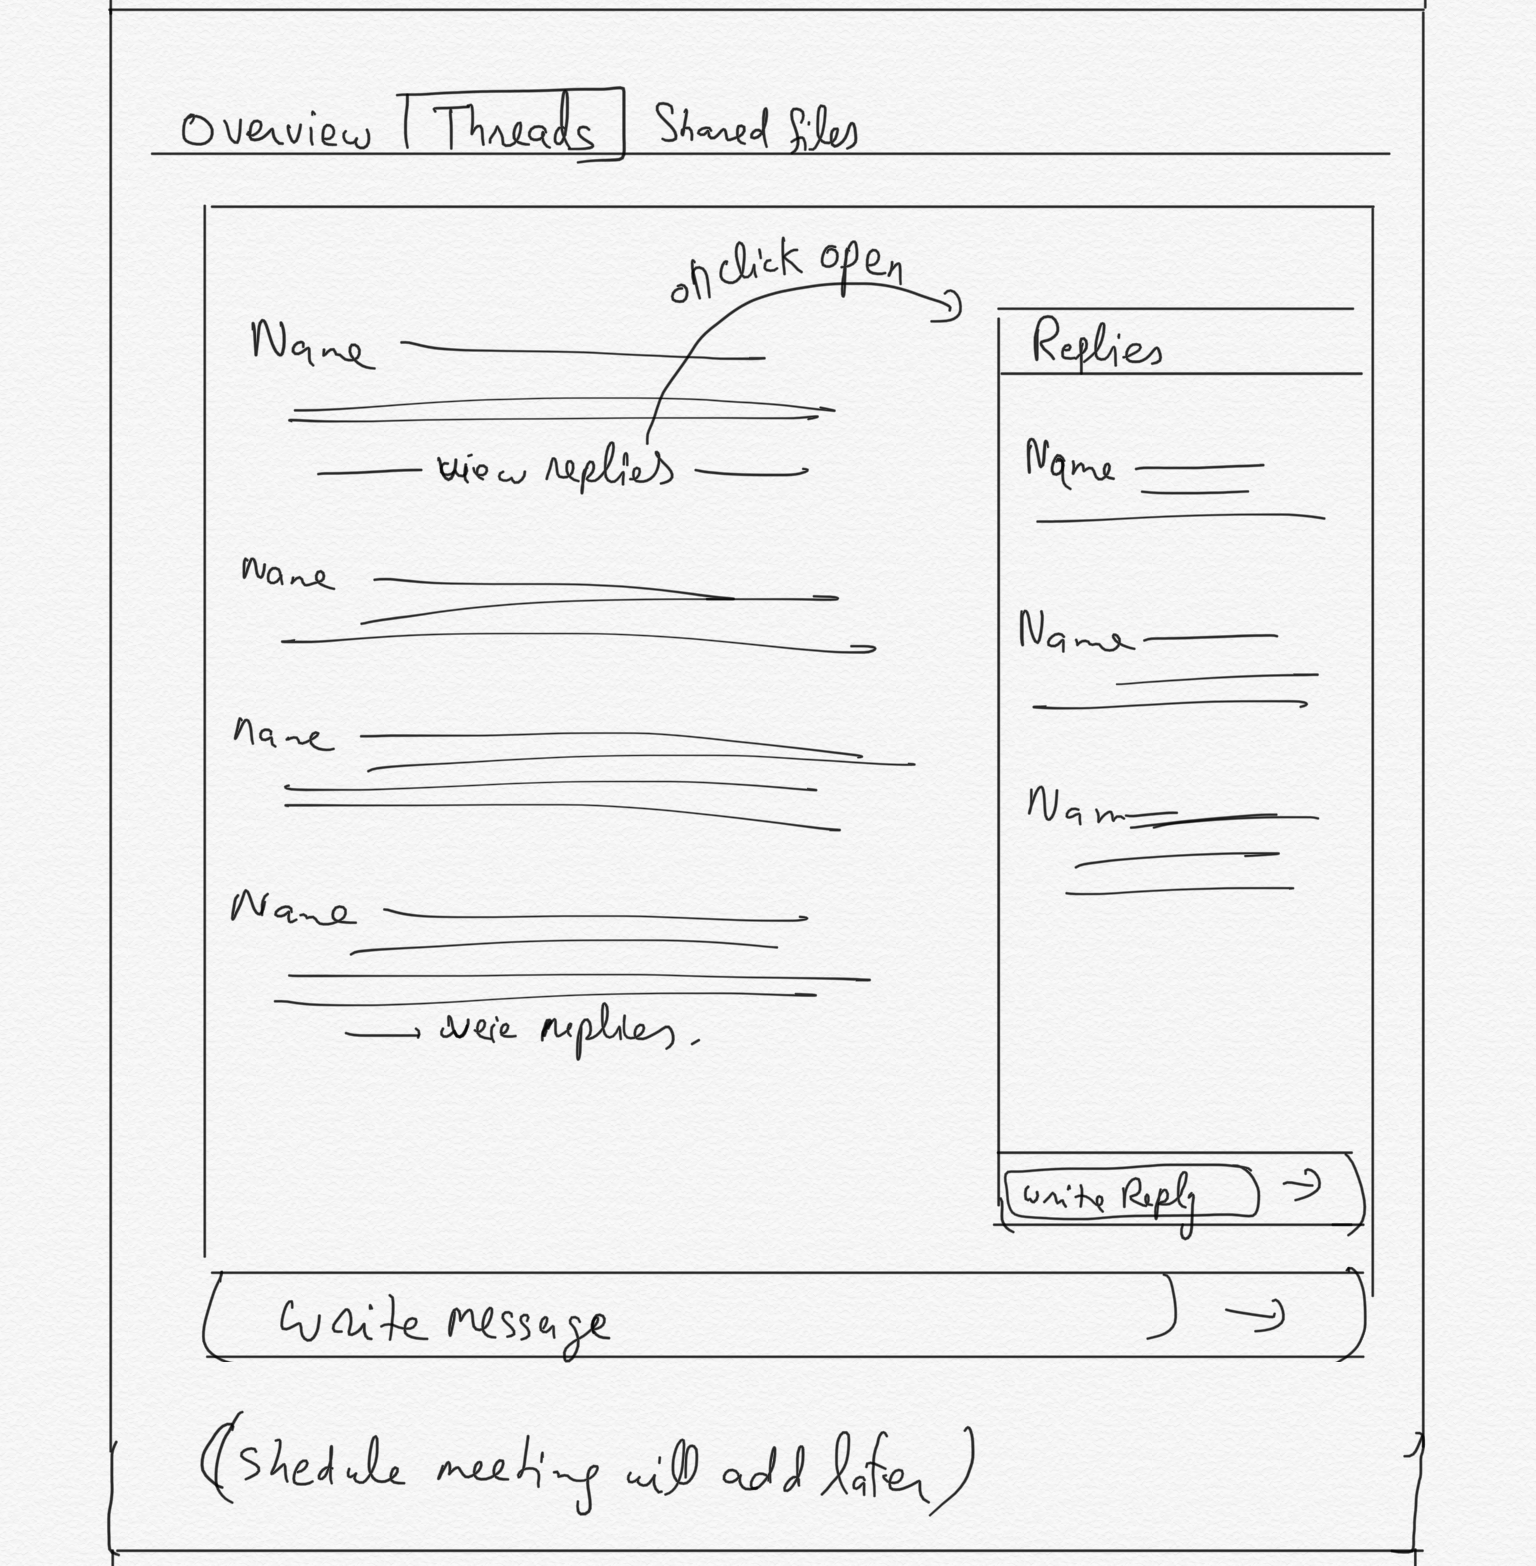 Overview Threads Shared files
on click open
Name
view replies
Name
Name
Name
veie replies.
Replies
Name
Name
Nam
write Reply →
write message →
(Shedule meeting will add later)